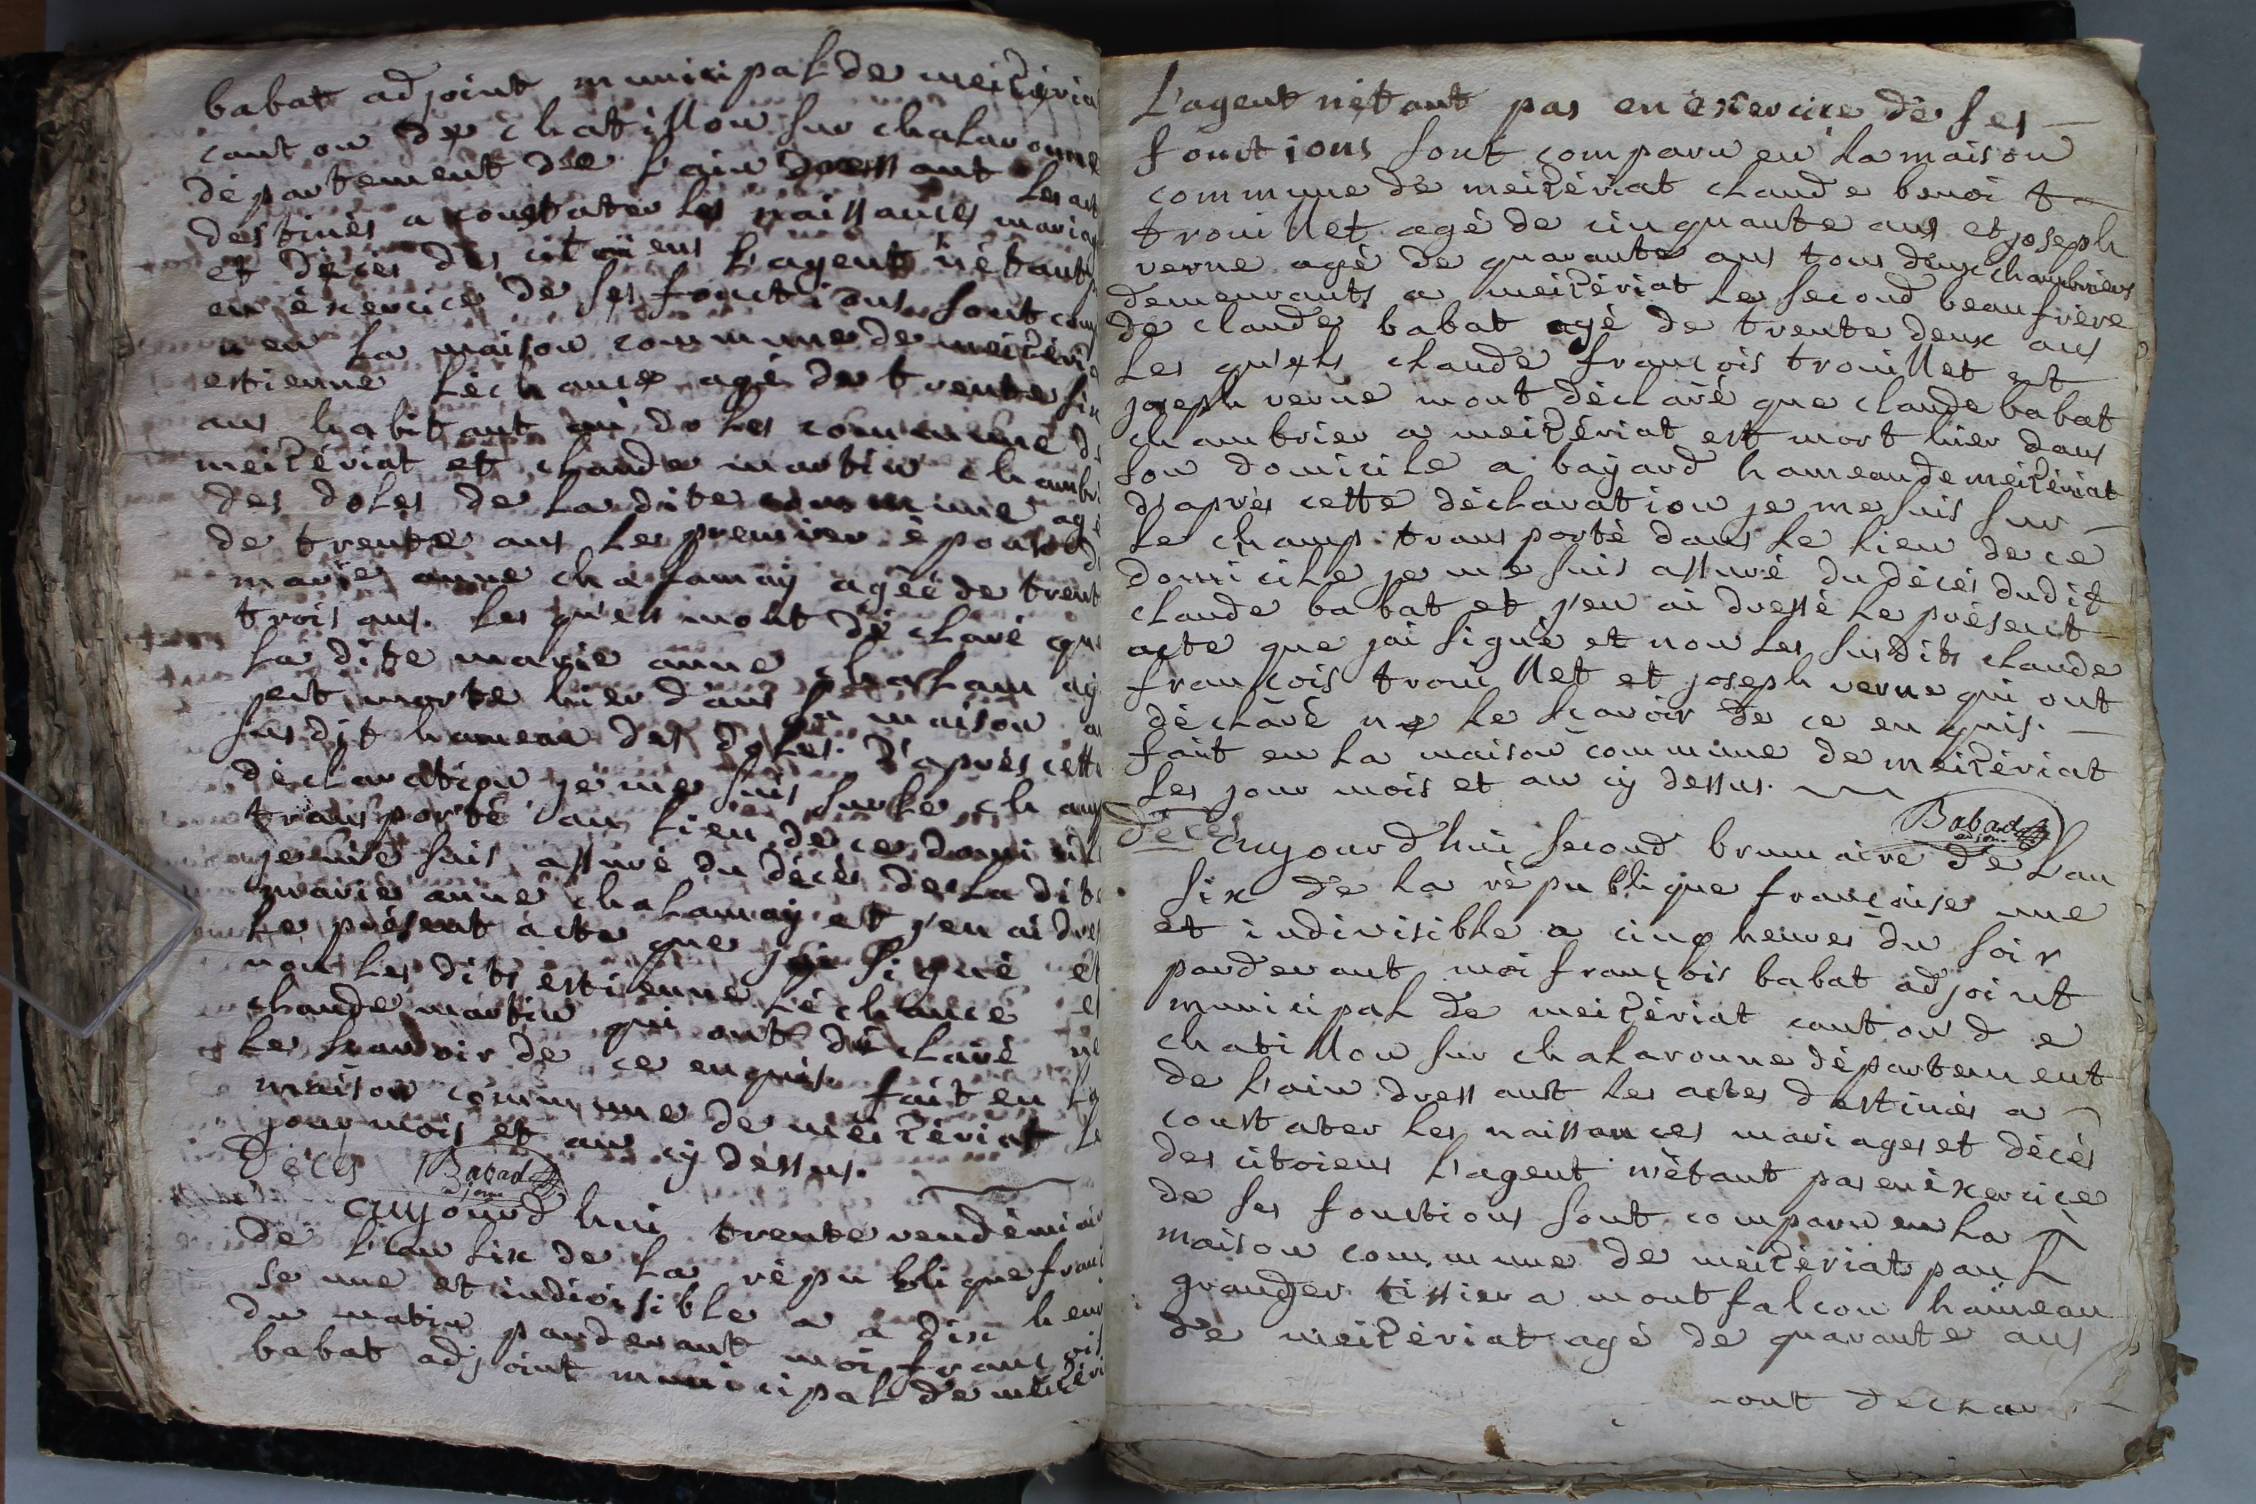 babat adjoint municipal de meizéria
canton de chatillon sur chalaronne
département de l'ain dressant les act
destinés a constater les naissances mariag
et décès des citoiens l'agent n'étant p
en éxercice de ses fonctions sont com
u en la maison commune de meizéri
estienne léchance agé de trente sin
ans habitant au doles commune d
meizériat et claude martin chambri
des doles de la dite commune agé
de trente ans les premier épous d
marie anne chalamay agéé de trent
trois ans. les quels mont déclaré que
la dite marie anne chalam ay
est morte hier dans sa maison au
susdit hameau des doles. d'après cette
déclaration je me suis sur le champ
transporté au lieu de ce domicile
je me suis assuré du décès de la dite
marie anne chalamay et j'en ai dres
le présent acte que j'ai signé et
non les dits estienne léchance et
claude martin qui ont déclaré ne
le scavoir de ce enquis. fait en la
maison commune de meizériat le
jour mois et an cy dessus.
Décès Babad
adjoint
aujourd hui trente vendémiair
de l'an six de la république franc
se une et indivisible a a dix heur
du matin pardevant moi francois
babat adjoint municipal de meizéri
L'agent nétant pas en éxercice de ses
fonctions sont comparu en la maison
commune de meizériat claude benoi t
trouillet agé de cinquante ans et joseph
verne agé de quarante ans tous deux chambriers
demeurants a meizériat le second beaufrère
de claude babat agé de trente deux ans
les quels claude françois trouillet et
joseph verne mont déclaré que claude babat
chambrier a meizériat est mort hier dans
son domicile a bayard hameau de meizériat
d'après cette déclaration je me suis sur
le champ transporté dans le lieu de ce
domicile je me suis assuré du décès dudit
claude babat et j'en ai dressé le présent
acte que jai signé et non les susdits claude
françois trouillet et joseph verne qui ont
déclaré ne le scavoir de ce en quis.
fait en la maison commune de meizériat
les jour mois et an cy dessus.
Babad
adjoint
décès
aujourd'hui second brumaire de l'an
six de la république françaises une
et indivisible a cinq heures du soir
pardevant moi françois babat adjoint
municipal de meizériat canton d e
chatillon sur chalaronne département
de l'ain dressant les actes destinés a
constater les naissances mariages et décès
des citoiens l'agent n'étant pas en éxercice
de ses fonctions sont comparu en la
maison commune de meizériat paul
granger tissier a montfalcon hameau
de meizériat agé de quarante ans
mont déclar